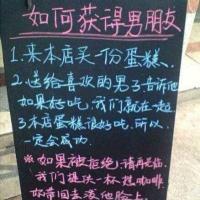 如何获得男朋友
1.来本店买一份蛋糕.
2.送给喜欢的男子告诉他
如果好吃,我们就在一起
3.本店蛋糕很好吃.所以
一定会成功.
※如果被拒绝,请再来临.
我们提决一杯怪咖啡
你带回去泼他脸上.